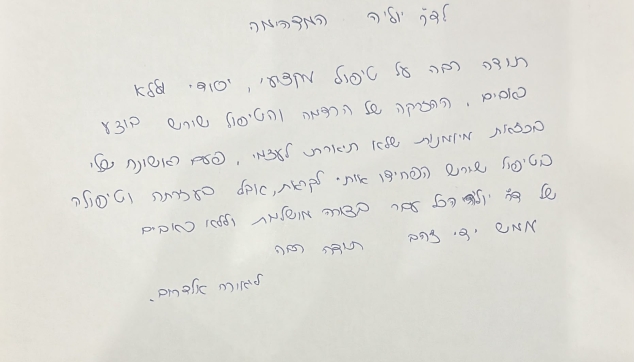 לדר' יוליה המדהימה
תודה רבה על טיפול מקצועי, יסודי וללא
כאבים. הזריקה של הרדמה והטיפול שורש בוצע
במיומנות שלא תיארתי לעצמי. פעם ראשונה שלי
בטיפול שורש הפחידו אותי לקראת, אבל בעזרתה וטיפולה
של דר' יוליה הכל עבר בצורה מושלמת וללא כאבים
ממש ידי זהב תודה רבה
ליאורה